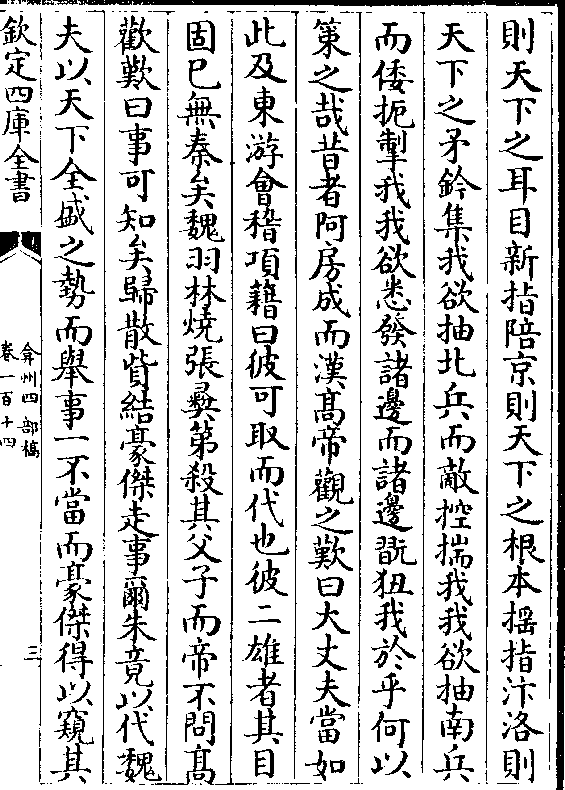 則天下之耳目新指陪京則天下之根本揺指汴洛則
天下之矛鈐集我欲抽北兵而敵控揣我我欲抽南兵
而倭扼掣我我欲悉發諸邊而諸邊翫狃我於乎何以
策之哉昔者阿房成而漢髙帝觀之歎曰大丈夫當如
此及東游會稽項籍曰彼可取而代也彼二雄者其目
固已無秦矣魏羽林燒張彞第殺其父子而帝不問髙
歡歎曰事可知矣歸散貲結豪傑走事爾朱竟以代魏
夫以天下全盛之勢而舉事一不當而豪傑得以窺其
欽定四庫全書
弇州四部稿
卷一百十四
三